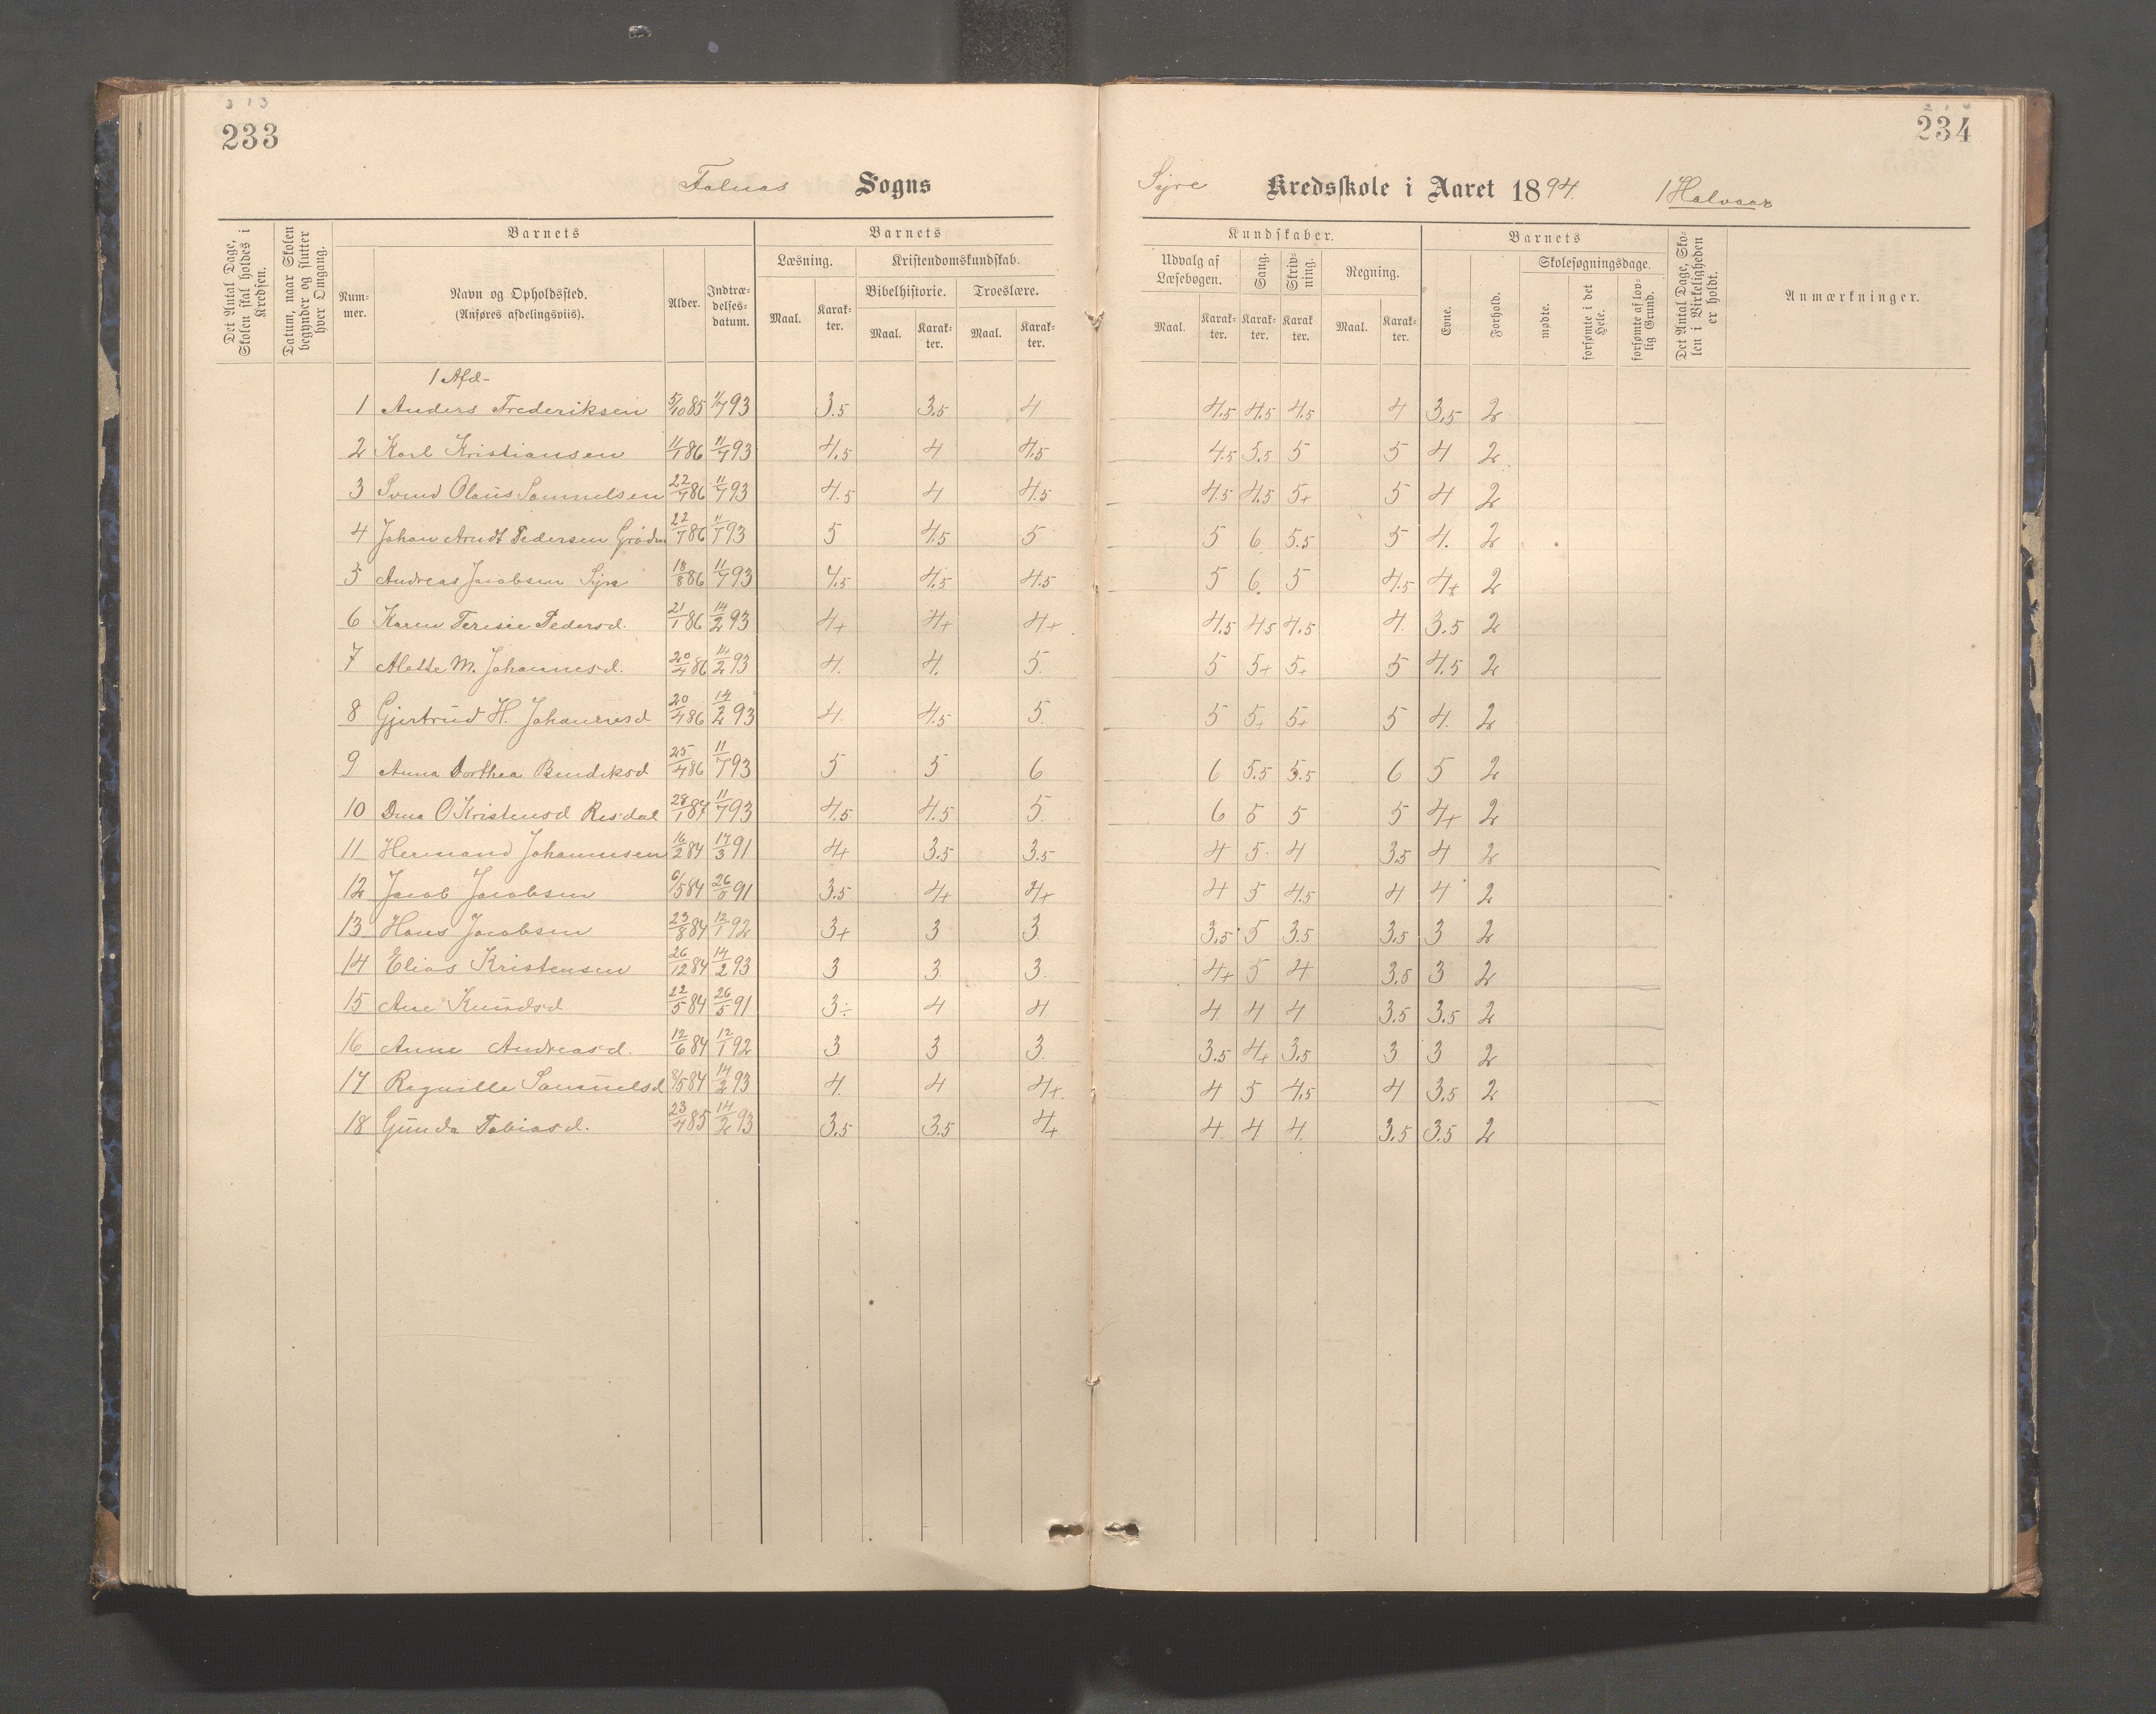 233
Falnas Sogns
Det Antal Dage, Skolen skal holdes i Kredsen.
Datum, naar Skolen begynder og slutter hver Omgang.
Barnets
Barnets
Num-mer.
Navn og Opholdssted. (Anføres afdelingsviis).
Alder.
Indtræ-delses-datum.
Læsning.
Kristendomskundskab.
Bibelhistorie.
Troeslære.
Maal. Karak-ter. Maal. Karak-ter. Maal. Karak-ter.
1 Afd-
1 Anders Frederiksen 5/10 85 93 3.5 3.5 4
2 Karl Kristiansen 11/1 86 11/7 93 4.5 4 4.5
3 Svend Olaus Samuelsen 22/7 86 11/7 93 4.5 4 4.5
4 Johan Arndt Pedersen 22/7 86 11/7 93 5 4.5 5
5 Andreas Jacobsen Syre 18/8 86 11/7 93 4.5 4.5 4.5
6 Karen Teresie Pedersd. 21/1 86 14/2 93 4+ 4+ 4+
7 Alette M. Johannesd. 20/4 86 14/2 93 4. 4. 5.
8 Gjertrud H. Johannesd 20/4 86 14/2 93 4. 4.5 5.
9 Anna Dorthea Bendiksd 25/4 86 11/7 93 5 5 6
10 Dina O Kristensd Risdal 28/1 87 11/7 93 4.5 4.5 5.
11 Hermand Johannesen 16/2 84 17/3 91 4+ 3.5 3.5
12 Jacob Jacobsen 6/5 84 26/5 91 3.5 4+ 4+
13 Hans Jacobsen 23/8 84 12/1 92 3+ 3 3
14 Elias Kristensen 26/12 84 14/2 93 3 3. 3.
15 Ane Knudsd 22/5 84 26/5 91 3÷ 4 4
16 Anne Andreasd. 12/6 84 12/1 92 3 3 3.
17 Ragnille Samuelsd 8/5 84 14/2 93 4. 4 4+.
18 Gunda Tobiasd. 23/4 85 14/2 93 3.5 3.5 4+
234
Syre Kredsskole i Aaret 1894. 1 Halvaar
Kundskaber.
Barnets
Udvalg af Læsebogen.
Sang.
Skriv-ning.
Regning.
Evne.
Forhold.
Skolesøgningsdage.
mødte.
forsømte i det Hele.
forsømte af lov-lig Grund.
Det Antal Dage, Sko-len i Virkeligheden er holdt.
Anmærkninger.
Maal. Karak-ter. Karak-ter. Karak ter. Maal. Karak-ter.
4.5 4.5 4.5 4 3.5 2
4.5 3.5 5 5 4 2
4.5 4.5 5+ 5 4 2
5 6 5.5 5 4. 2
5 6 5 4.5 4+ 2
4.5 4.5 4.5 4. 3.5 2
5 5+ 5+ 5 4.5 2
5 5+ 5+ 5 4. 2
6 5.5 5.5 6 5 2
6 5 5 5 4+ 2
4 5 4 3.5 4 2
4 5 4.5 4 4 2
3.5 5 3.5 3.5 3 2
4+ 5 4 3.5 3 2
4 4 4 3.5 3.5 2
3.5 4+ 3.5 3 3 2
4 5 4.5 4 3.5 2
4. 4 4. 3.5 3.5 2